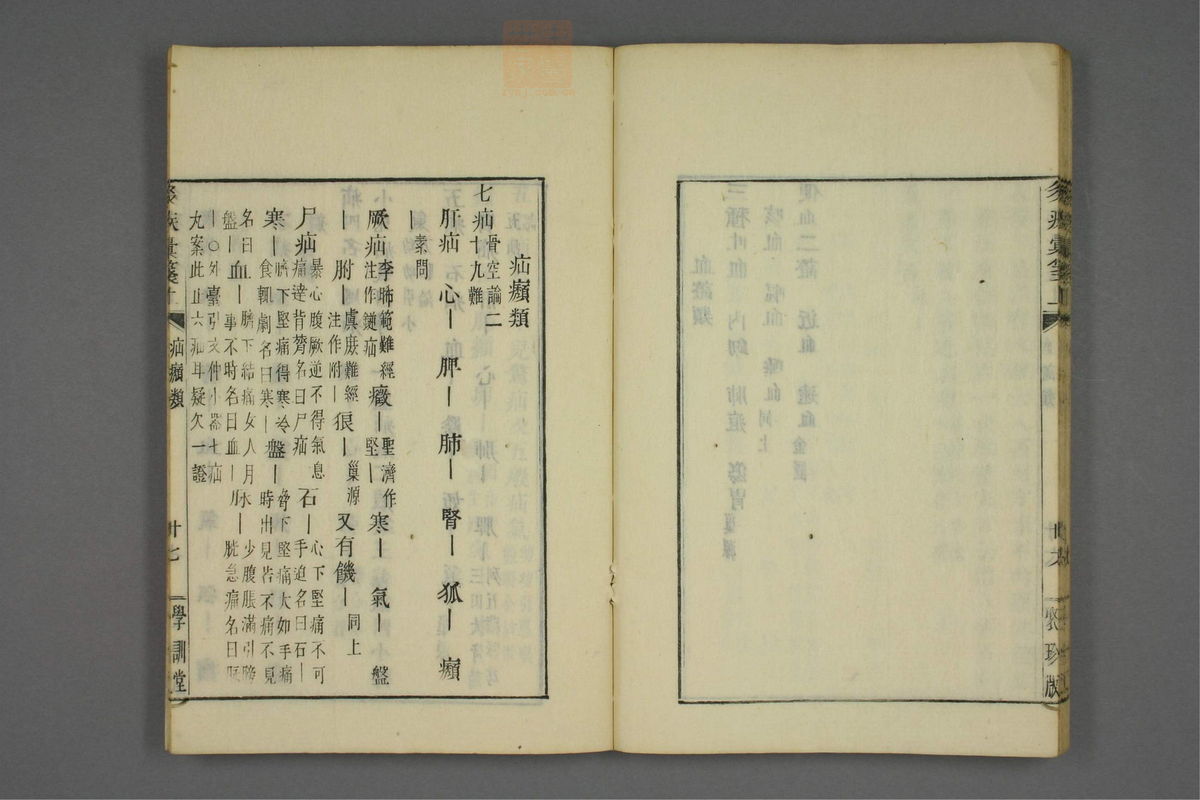 疝㿗類
七疝 骨空論二十九難
肝疝 心｜ 脾｜ 肺｜ 腎｜ 狐｜ 㿗｜ 素問
厥疝 李駉範難經注作𤺊疝 癥｜ 聖濟作堅｜ 寒｜ 氣｜ 盤
｜ 胕｜ 虞庶難經注作附｜ 狼｜ 巢源 又有饑｜ 同上
尸疝 暴心腹厥逆不得氣息痛達背膂名曰尸疝 石｜ 心下堅痛不可手迫名曰石｜
寒｜ 臍下堅痛得寒冷食輒劇名曰寒｜ 盤｜ 脅下堅痛大如手痛時出見若不痛不見
名曰盤｜ 血｜ 臍下結痛女人月事不時名曰血｜ 少腹脹滿引膀胱急痛名曰
｜○外臺引文仲小器七疝丸案此止六疝耳疑欠一證
疝㿗類
廿七
學訓堂
聚珍版